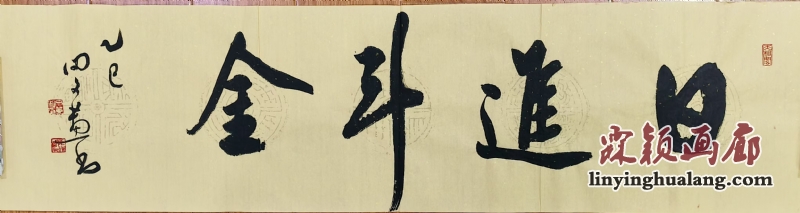 日進斗金
乙巳
霖颖画廊
linyinghualang.com